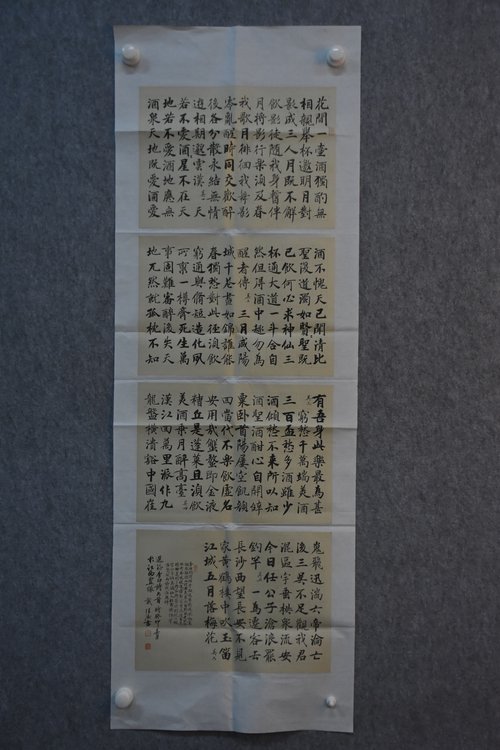 花間一壺酒獨酌無
相親舉杯邀明月對
影成三人月既不解
飲影徒隨我身暫伴
月將影行樂須及春
我歌月徘徊我舞影
零亂醒時同交歡醉
後各分散永結無情
遊相期邈雲漢 其一 天
若不愛酒星不在天
地若不愛酒地應無
酒泉天地既愛酒愛
酒不愧天已聞清比
聖復道濁如賢聖既
已飲何必求神仙三
杯通大道一斗合自
然但得酒中趣勿為
醒者傳 其二 三月咸陽
城千花晝如錦誰能
春獨愁對此徑須飲
窮通與脩短造化夙
所稟一樽齊死生萬
事固難審醉後失天
地兀然就孤枕不知
有吾身此樂最為甚
其三 窮愁千萬端美酒
三百盃愁多酒雖少
酒傾愁不來所以知
酒聖酒酣心自開辭
粟臥首陽屢空飢顏
回當代不樂飲虛名
安用哉蟹螯即金液
糟丘是蓬萊且須飲
美酒乘月醉高臺 其四
漢江回萬里派作九
龍盤橫潰豁中國崔
嵬飛迅湍六帝淪亡
後三吳不足觀我君
混區宇垂拱眾流安
今日任公子滄浪罷
釣竿 其一 一為遷客去
長沙西望長安不見
家黃鶴樓中吹玉笛
江城五月落梅花 其二